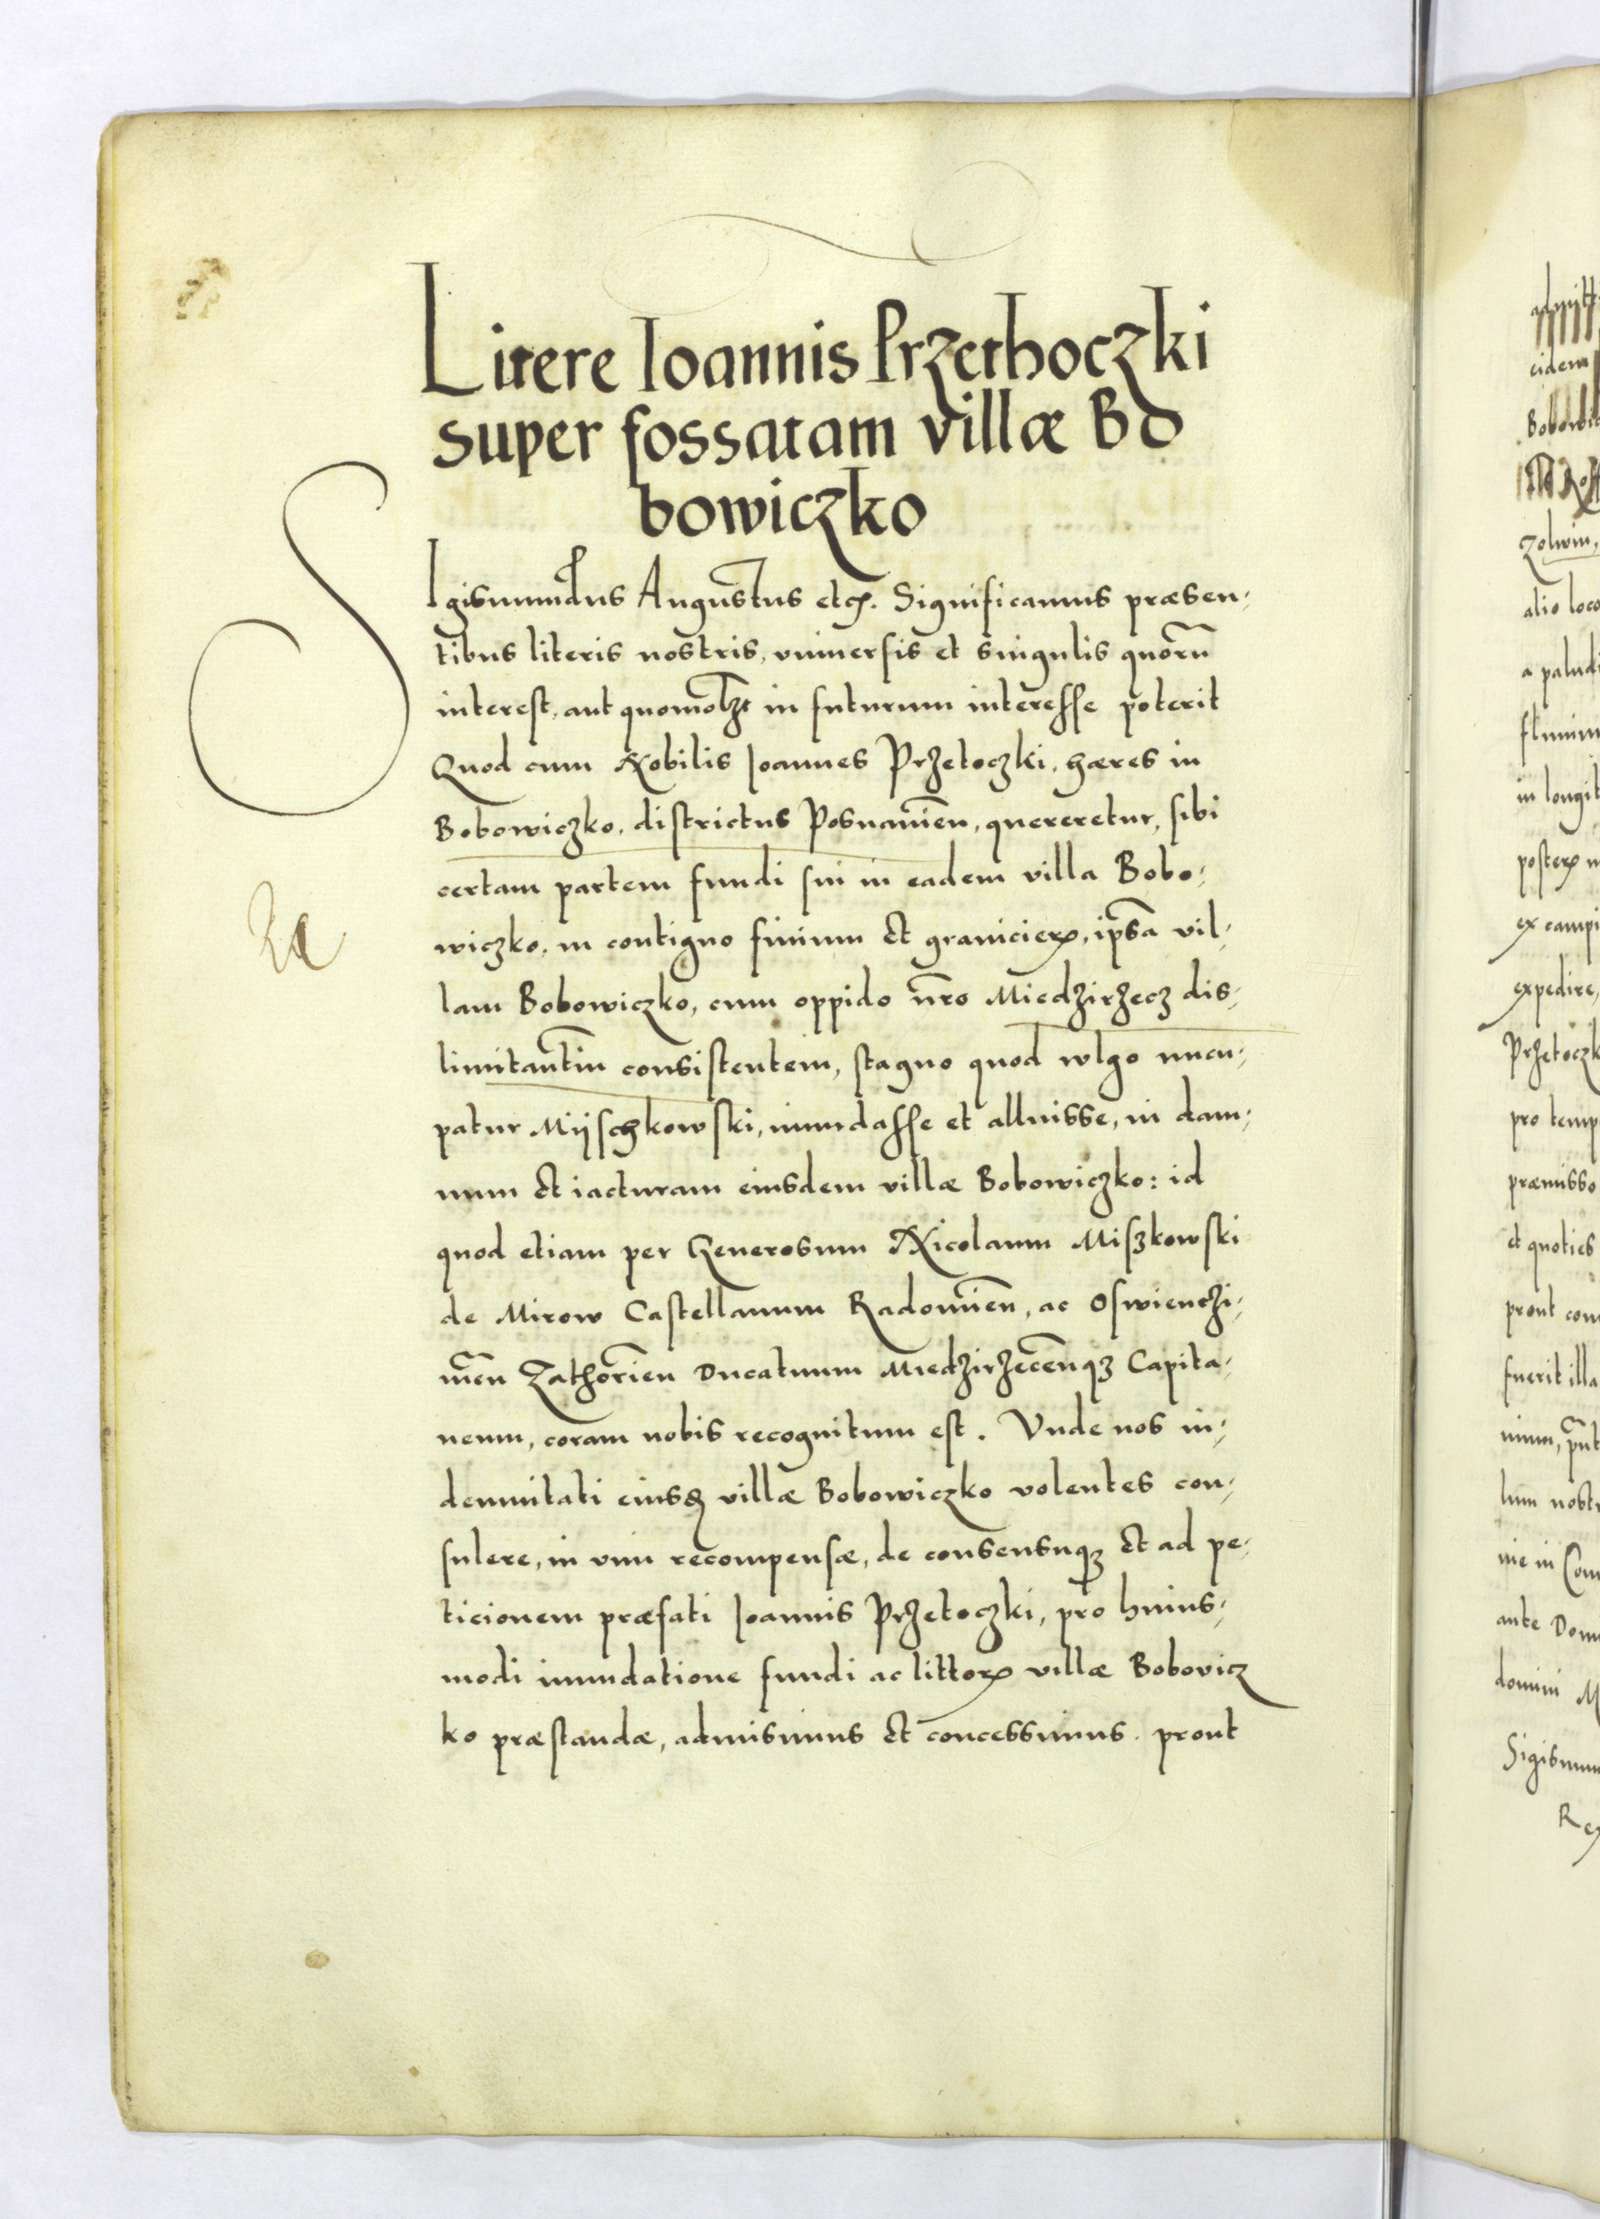 Litere Ioannis Przethoczki
super fossatam villæ Bo
bowiczko
Sigismundus Augustus etc. Significamus præsen-
tibus literis nostris, vniuersis et singulis quorū
interest, aut quomolzt in futurum interesse poterit
Quod cum Nobilis Joannes Przetoczki, hæres in
Bobowiczko, districtus Posnanień, quereretur, sibi
certam partem fundi sui in eadem villa Bobo-
wiczko, in contiguo finium et granicieꝝ, ipsā vil-
lam Bobowiczko, cum oppido nr̄o Miedzirzecz dis-
limitantiū consistentem, stagno quod wlgo nucu-
patur Mijschkowski, inundasse et alluisse, in dam-
num et iacturam eiusdem villæ Bobowiczko: id
quod etiam per Generosum Nicolaum Miszkowski
de Mirow Castellanum Radomień, ac Oswienczi-
meń Zathorień Ducatuum Miedzirzeceńqꝫ Capita-
neum, coram nobis recognitum est. Vnde nos in-
demnitati eiusd villæ Bobowiczko volentes con-
sulere, in vim recompensæ, de consensuqꝫ et ad pe-
ticionem præfati Joannis Przetoczki, pro huius-
modi inundatione fundi ac littoꝝ villæ Bobovicz
ko præstandæ, admisimus et concessimus. prout
cidem
Czolwin,
alio loco
a paludi
in longit
posteꝝ
ex campi
expedire,
Przetoczk
pro temp
præmisso
et quoties
prout con
fuerit illa
lum nostr
nie in Com
ante Dom
domini M
Sigismun
Rex